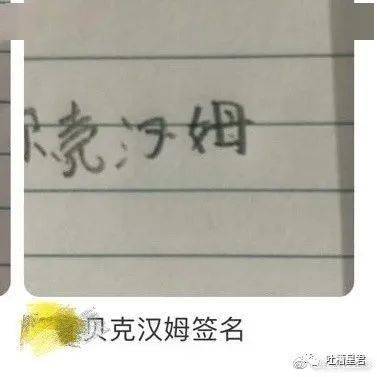 贝克汉姆
贝克汉姆签名
吐槽星君